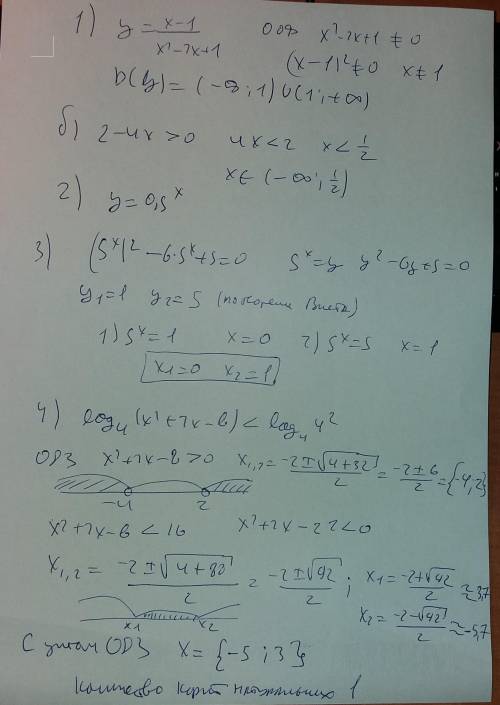 1) y = x-1 / x²-2x+1 ООФ x²-2x+1 ≠ 0
(x-1)² ≠ 0 x ≠ 1
D(y) = (-∞; 1) ∪ (1; +∞)
б) 2-4x > 0 4x < 2 x < 1/2
x ∈ (-∞; 1/2)
2) y = 0,5^x
3) (5^x)² - 6·5^x + 5 = 0 5^x = y y² - 6y + 5 = 0
y₁ = 1 y₂ = 5 (по теореме Виета)
1) 5^x = 1 x = 0 2) 5^x = 5 x = 1
x₁ = 0 x₂ = 1
4) log₄(x²+2x-6) < log₄ 4²
ОДЗ x²+2x-8 > 0 x₁,₂ = -2±√(4+32) / 2 = -2±6 / 2 = {-4, 2}
-4 2
x²+2x-6 < 16 x²+2x-22 < 0
x₁,₂ = -2±√(4+88) / 2 = -2±√92 / 2 ; x₁ = -2+√92 / 2 ≈ 3,7
x₁ x₂ x₂ = -2-√92 / 2 ≈ -5,7
С учетом ОДЗ x = {-5; 3}
Количество корней натуральных 1